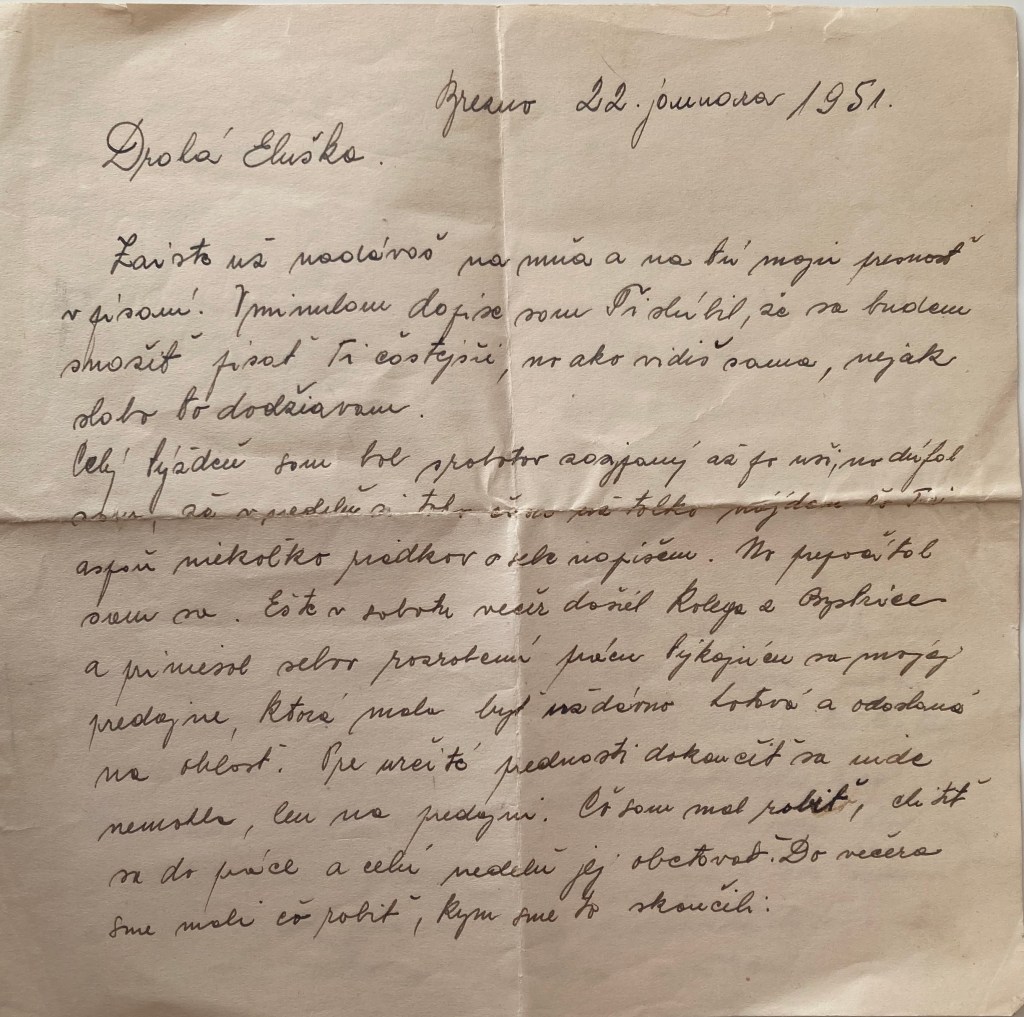 Brezno 22. januara 1951.
Drahá Eluška.
Zaiste už nadávaš na mňa a na tú moju presnosť
v písaní. V minulom dopise som Ti slúbil, že sa budem
snažiť písať Ti častejšie, no ako vidíš sama, nejak
slabo to dodžiavam.
Celý týždeň som bol s robotou zasypaný až po uši, no dúfal
som, že v nedelu si toho času už tolko nájdem čo Ti
aspoň niekoľko riadkov o sebe napíšem. No prepočítal
som sa. Ešte v sobotu večer došiel kolega z Bystrice
a priniesol sebou rozrobenú prácu týkajúcu sa mojej
predajne, ktorá mala byť už dávno hotová a odoslaná
na oblasť. Pre určité prednosti dokončiť sa inde
nemohla, len na predajni. Čo som mal robiť, chitiť
sa do práce a celú nedelu jej obetovať. Do večera
sme mali čo robiť, kym sme to skončili.